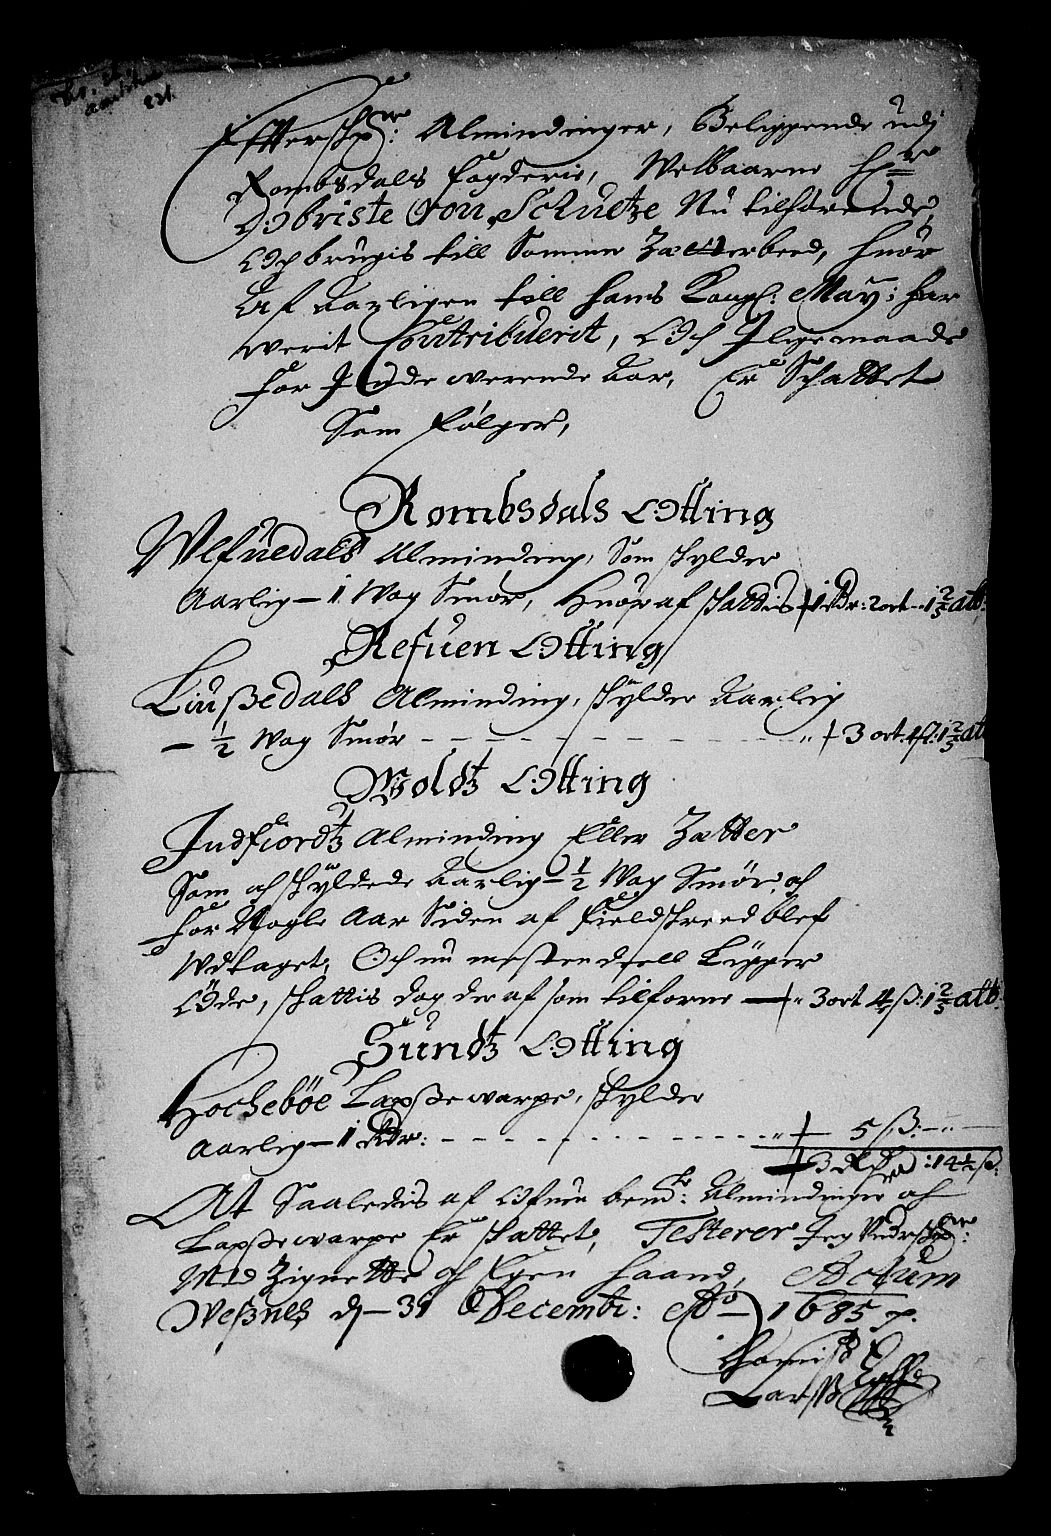 Effterschrne: Almindinger, Beliggende udj
Rombsdals fogderie, Welbaarne Hr
Obriste von Schuetze Nu tilhørende,
Och brugis till Somme Zætterbeed, huor
Af Aarligen till hans Kongl: May: har
werit Contribuerit, Och J lige maade
for J Nde werende Aar, Er Schattet
Som følger,
Rombsdals Otting
Wlfuedals Alminding, Som schylder
Aarlig – 1 Wog Smør, huoraf schattis – 1 Rdr: 2 ort – 1 2/5 alb:
Refuen Otting
Liußedals Alminding, schylder Aarlig
– 1/2 Wog Smør - - - 3 ort 4 ß: 1 2/5 alb
Woldtz Otting
Indfiordtz Alminding Eller Zætter
Som och schyldede Aarlig – 1/2 Wog Smør, og
for Nogle Aar Siden af fieldschreed blef
Wdtaget, Och nu mestendeell Ligger
Øde, schattis dog der af som tilforne – 3 ort 4 ß: 1 2/5 alb
Sundtz Otting
Hochebøe Laxßewarpe, schylder
Aarlig – 1 Rdr: - - - 5 ß: –
3 Rdr: 14 1/2 ß:
At Saaledis af Ofuen bemte: Alminding och
Laxßewarpe Er schattet, Testerer Jeg Vndrschrne:
Med Zignette och Egen haand, Actum
Weßnes d – 31 Decembr: Ao – 1685 p.
Larß